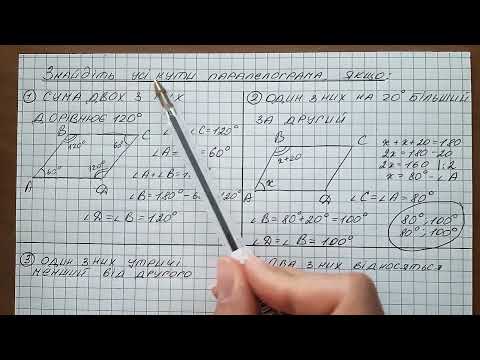 Знайдіть усі кути паралелограма, якщо:
① Сума двох з них
дорівнює 120°
B C
120° 60°
60° 120°
A D
∠C=120°
∠A= =60°
∠A+∠B=1
∠B=180°-6 120°
∠D=∠B=120°
② Один з них на 20° більший
за другий
B C
x+20
x
A D
x+x+20=180
2x=180-20
2x=160 |:2
x=80°-∠A
∠C=∠A=80°
∠B=80°+20°=100°
∠D=∠B=100°
80°; 100°
80°; 100°
③ Один з них утричі
менший від другого
два з них відносяться